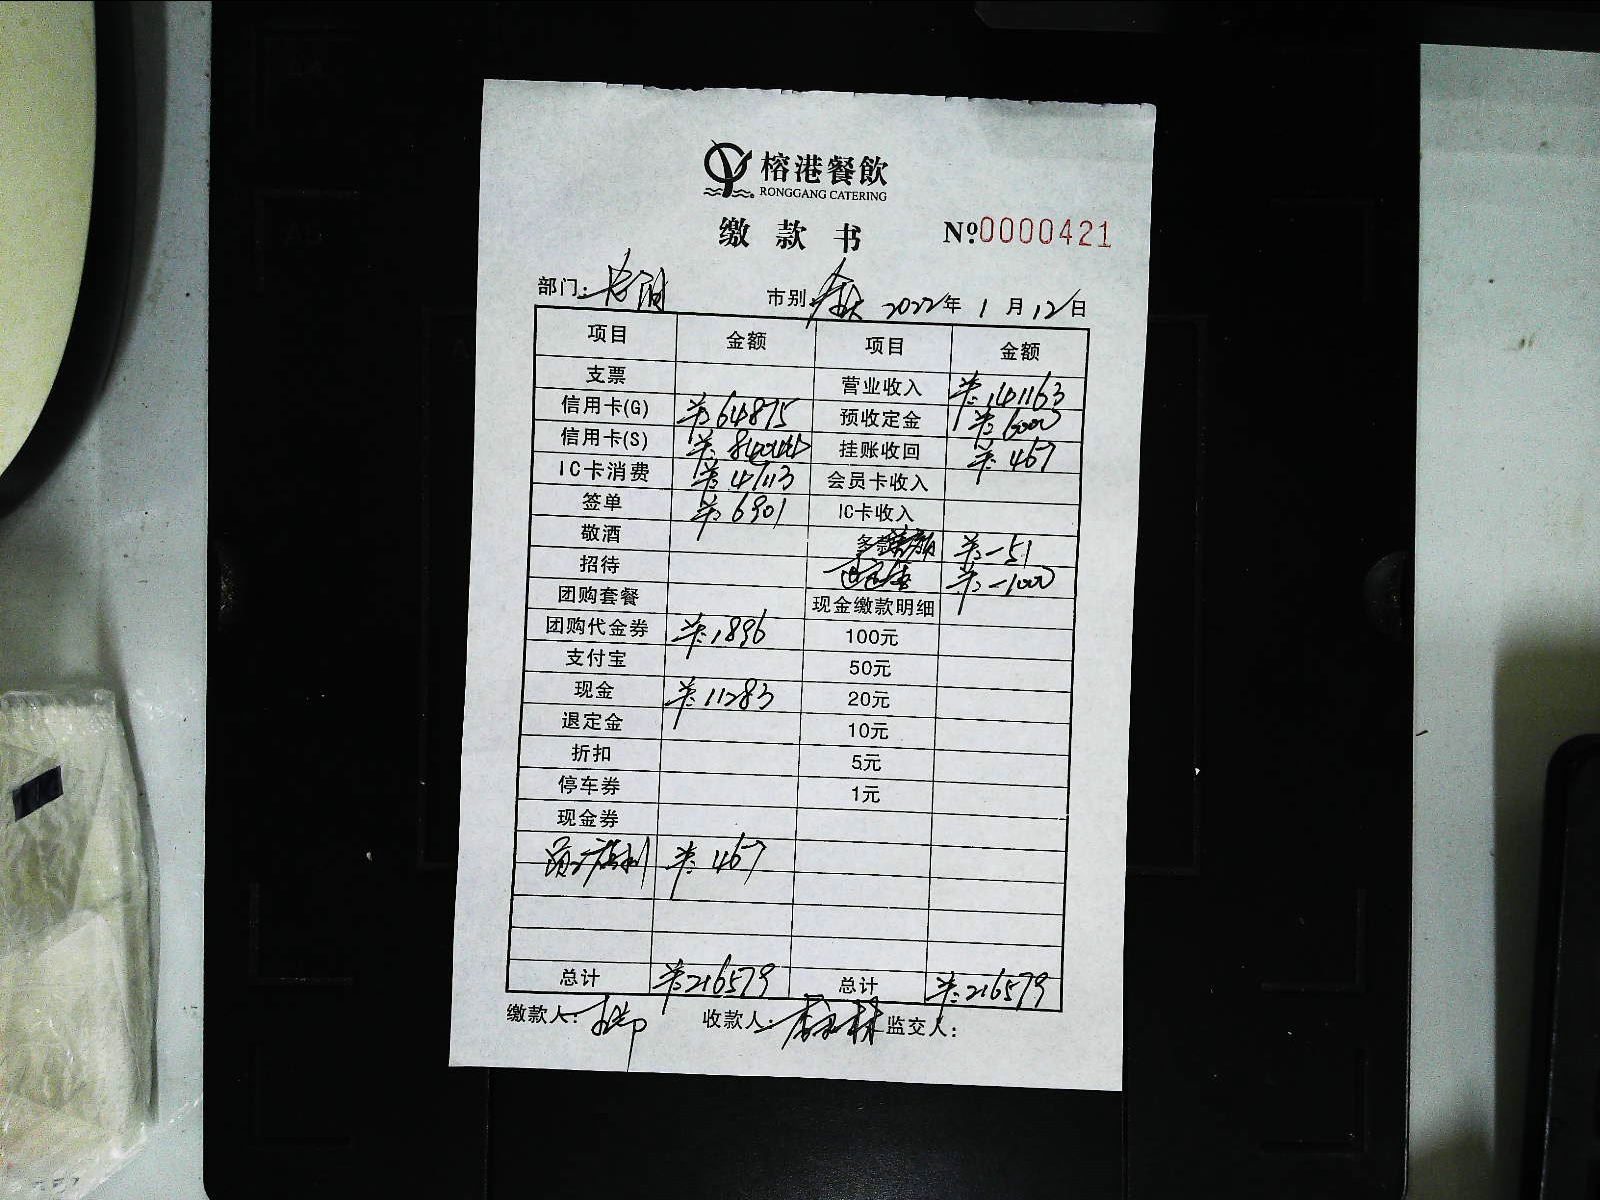 榕港餐飲
RONGGANG CATERING
缴款书 №0000421
部门: 市别: 全天 2022年1月12日
项目 金额 项目 金额
支票 营业收入 羊:141163
信用卡(G) 羊:64875 预收定金 羊:6000
信用卡(S) 挂账收回 羊:467
IC卡消费 会员卡收入
签单 羊:6901 IC卡收入
敬酒 多款 羊:-51
招待 羊:-1000
团购套餐 现金缴款明细
团购代金券 羊:1896 100元
支付宝 50元
现金 羊:11283 20元
退定金 10元
折扣 5元
停车券 1元
现金券
员工福利 羊:467
总计 羊:216579 总计 羊:216579
缴款人: 收款人: 监交人: